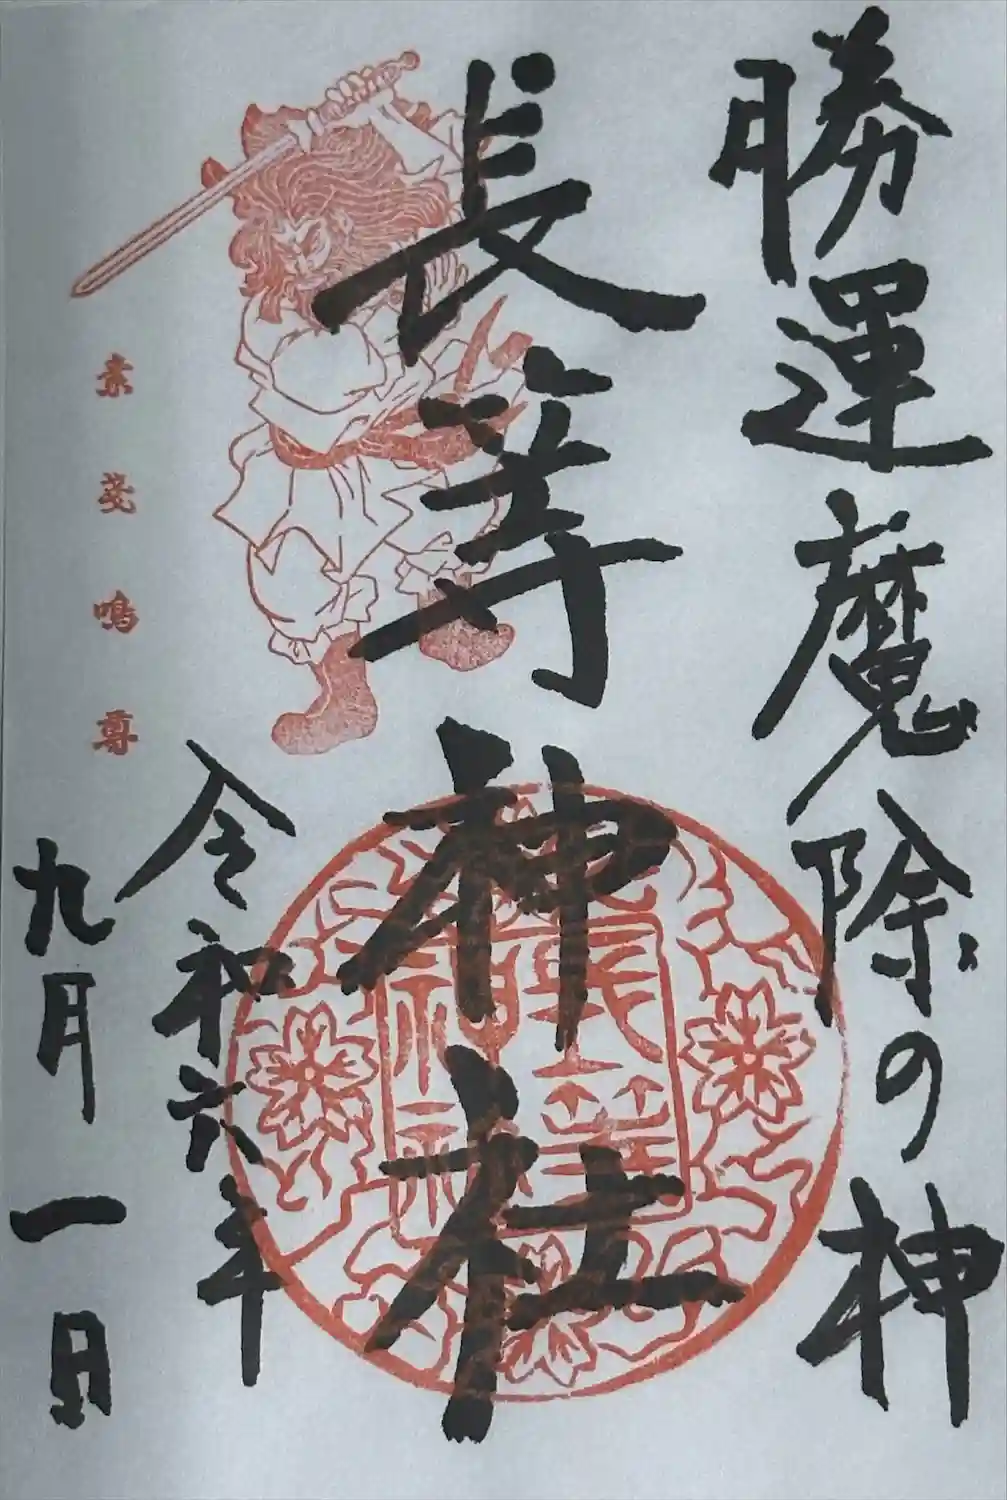 勝運魔除の神
長等神社
長等神社
令和六年
九月一日
素戔嗚尊